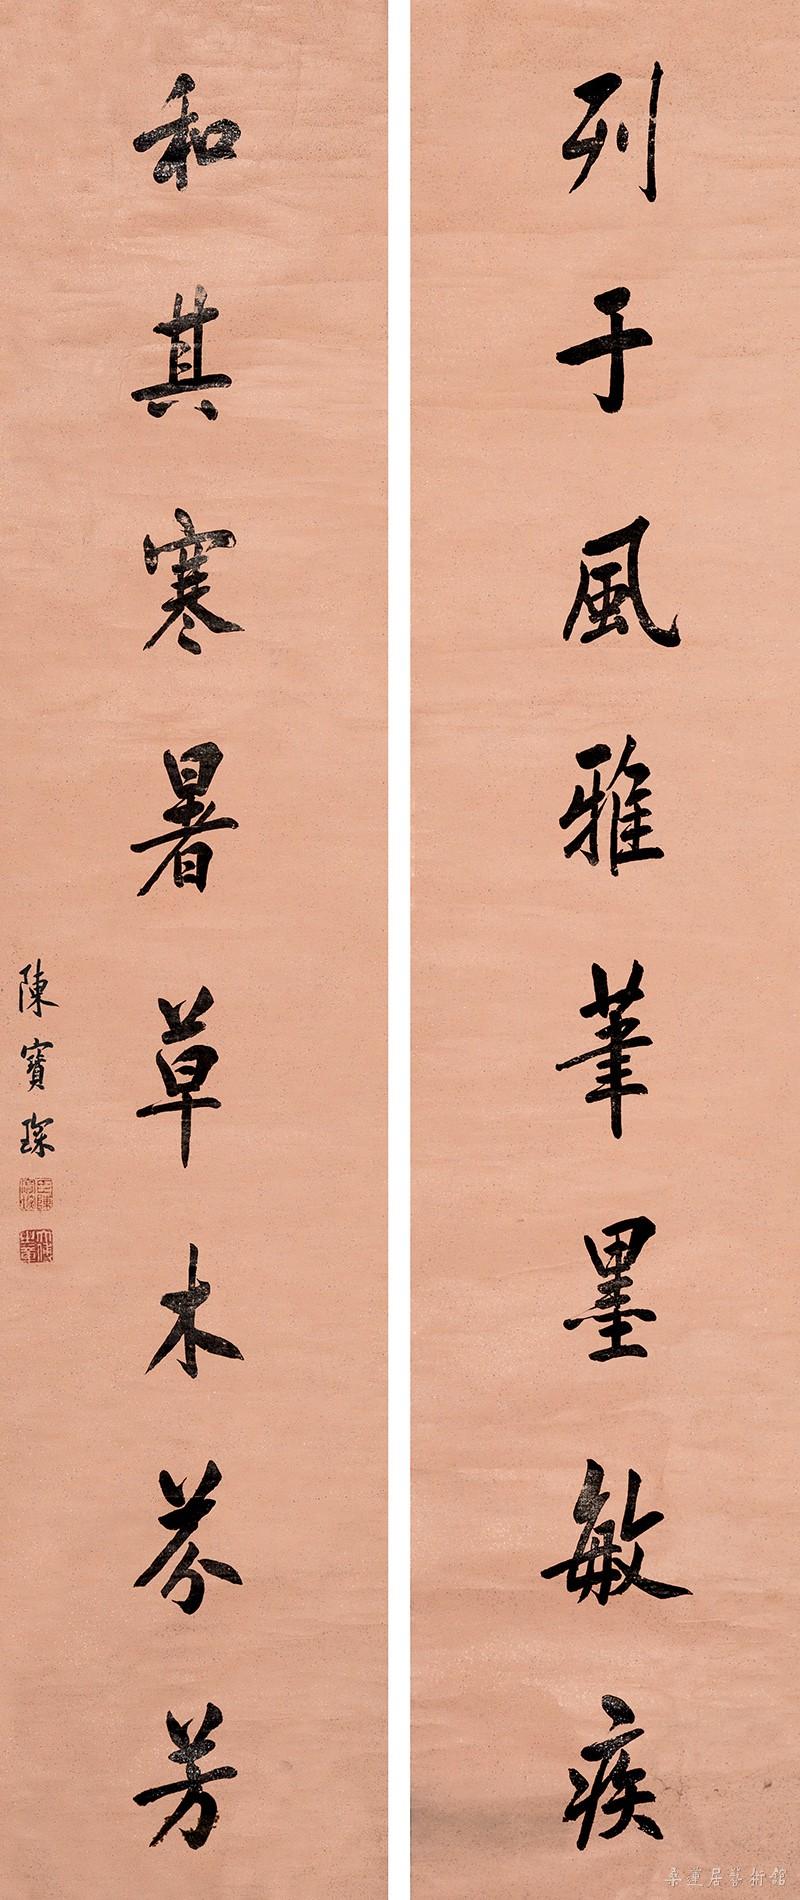 列于風雅筆墨敏疾
和其寒暑草木芬芳
陳寶琛
桑蓮居藝術館